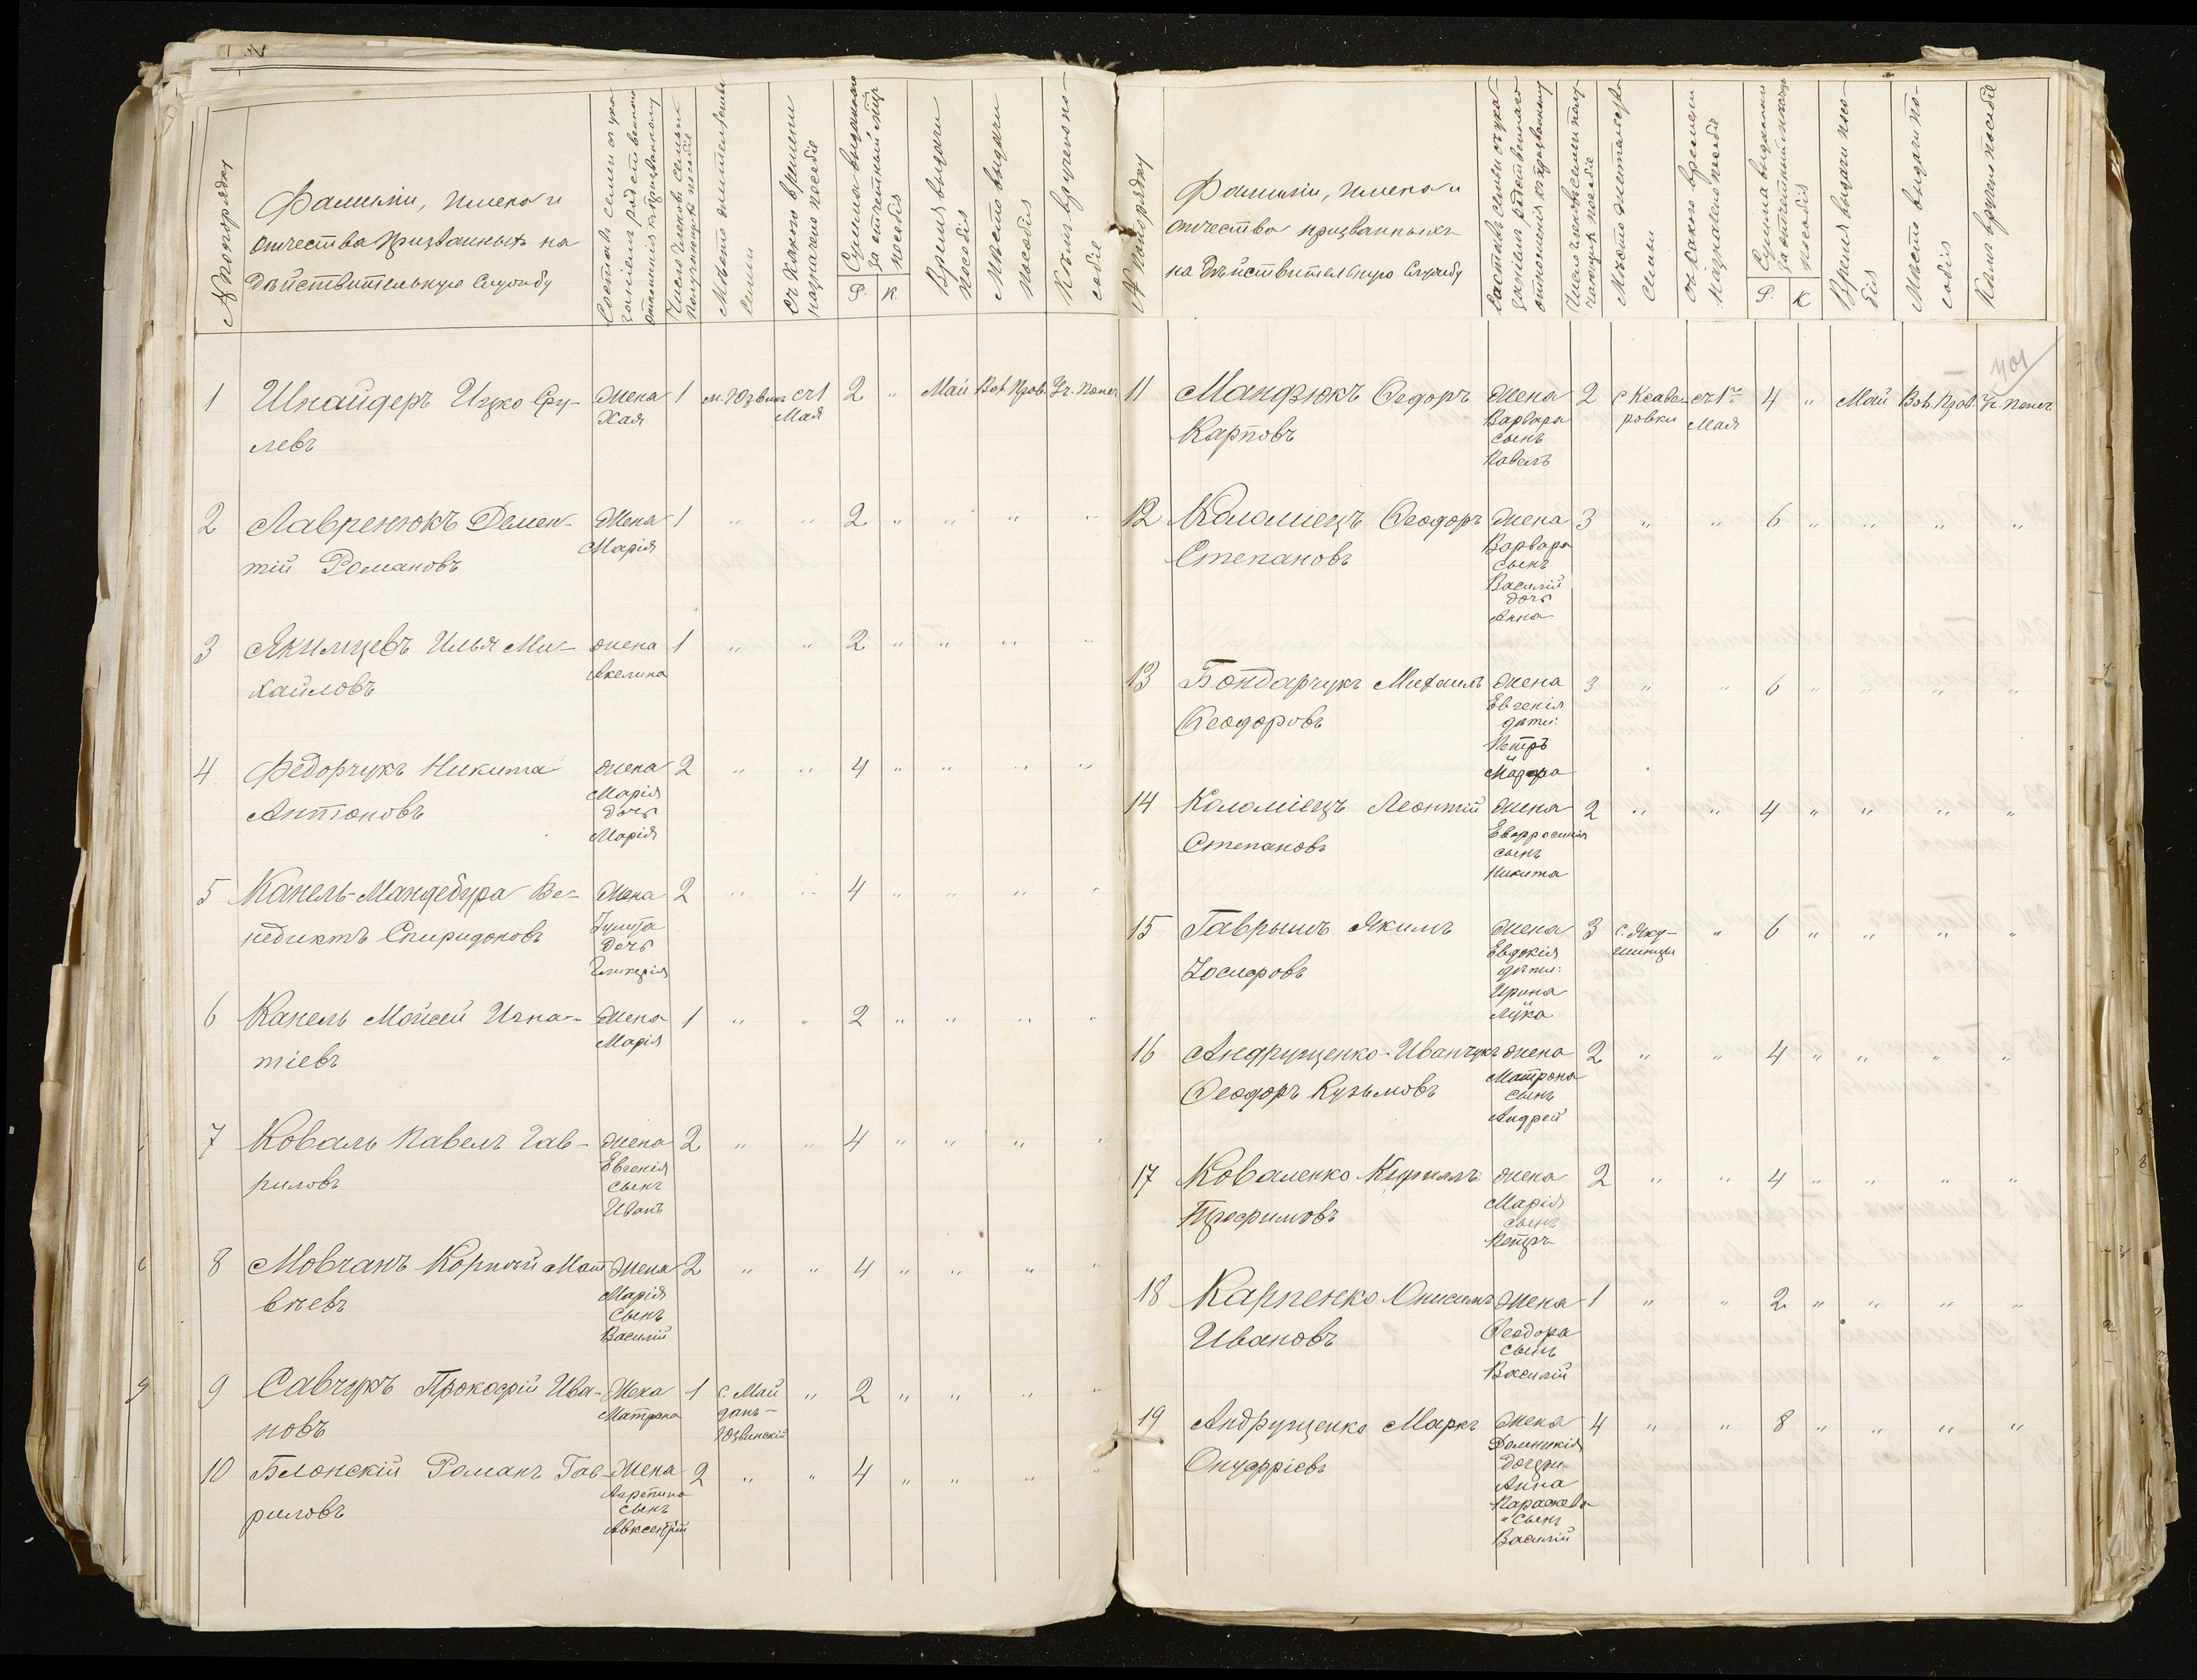 № по порядку
Фамиліи, имена и
отчества призванныхъ на
дѣйствительную службу
Составъ семьи съ ука-
заніемъ родственнаго
отношенія къ призванному
Число членовъ семьи
получающихъ пособіе
Мѣсто жительства
семьи
Съ какого времени
назначено пособіе
Сумма выданнаго
за отчетный мѣсяц
пособія
Р. К.
Время выдачи
пособія
Мѣсто выдачи
пособія
Кѣмъ вручено по-
собіе
1 Шнайдеръ Ицко Сру- жена 1 м. Юзвинъ съ 1 2 " Май Вол. Прав. Уч. Попеч.
левъ Хая Мая
2 Лавренюкъ Демен- жена 1 " " 2 " " " "
тій Романовъ Марія
3 Якимцевъ Илья Ми- жена 1 " " 2 " " " "
хайловъ Акелина
4 Федорчукъ Никита жена 2 " " 4 " " " "
Антоновъ Марія
дочь
Марія
5 Канель-Мандебура Ве- жена 2 " " 4 " " " "
недиктъ Спиридоновъ Іулита
дочь
Гликерія
6 Канель Мойсей Игна- жена 1 " " 2 " " " "
тіевъ Марія
7 Коваль Павелъ Гав- жена 2 " " 4 " " " "
риловъ Евгенія
сынъ
Иванъ
8 Мовчанъ Корнѣй Мат жена 2 " " 4 " " " "
вѣевъ Марія
сынъ
Василій
9 Савчукъ Прокофій Ива- жена 1 с. Май " 2 " " " "
новъ Матрона данъ-
Юзвинскій
10 Блонскій Романъ Гав- жена 2 " " 4 " " " "
риловъ Агрепина
сынъ
Авксентій
№ по порядку
Фамиліи, имена и
отчества призванныхъ
на дѣйствительную службу
Составъ семьи съ ука-
заніемъ родственнаго
отношенія къ призванному
Число членовъ семьи полу-
чающихъ пособіе
Мѣсто жительства
семьи
Съ какого времени
назначено пособіе
Сумма выданнаго
за отчетный мѣсяцъ
пособія
Р. К
Время выдачи посо-
бія
Мѣсто выдачи по-
собія
Кѣмъ вручено пособіе
401
11 Мандзюкъ Федоръ жена 2 с Ксаве- съ 1го 4 " Май Вол. Прав. Уч. Попеч.
Карповъ Варвара ровки Мая
сынъ
Павелъ
12 Коломіецъ Феодоръ жена 3 " " 6 " " " "
Степановъ Варвара
сынъ
Василій
дочь
Анна
13 Бондарчукъ Михаилъ жена 3 " " 6 " " " "
Феодоровъ Евгенія
дѣти:
Петръ
и
14 Коломіецъ Леонтій жена 2 " " 4 " " " "
Степановъ Евфросинія
сынъ
Никита
15 Гаврышъ Якимъ жена 3 с. Яку- " 6 " " " "
Іосифовъ Евдокія шинцы
дѣти:
Ирина
и
Лука
16 Андрущенко-Иванчукъ жена 2 " " 4 " " " "
Феодоръ Кузьмовъ Матрона
сынъ
Андрей
17 Коваленко Кирилъ жена 2 " " 4 " " " "
Трофимовъ Марія
сынъ
Петръ
18 Карпенко Онисимъ жена 1 " " 2 " " " "
Ивановъ Феодора
сынъ
Василій
19 Андрущенко Маркъ жена 4 " " 8 " " " "
Онуфріевъ Домникія
дочери
Анна
Параскева
и сынъ
Василій